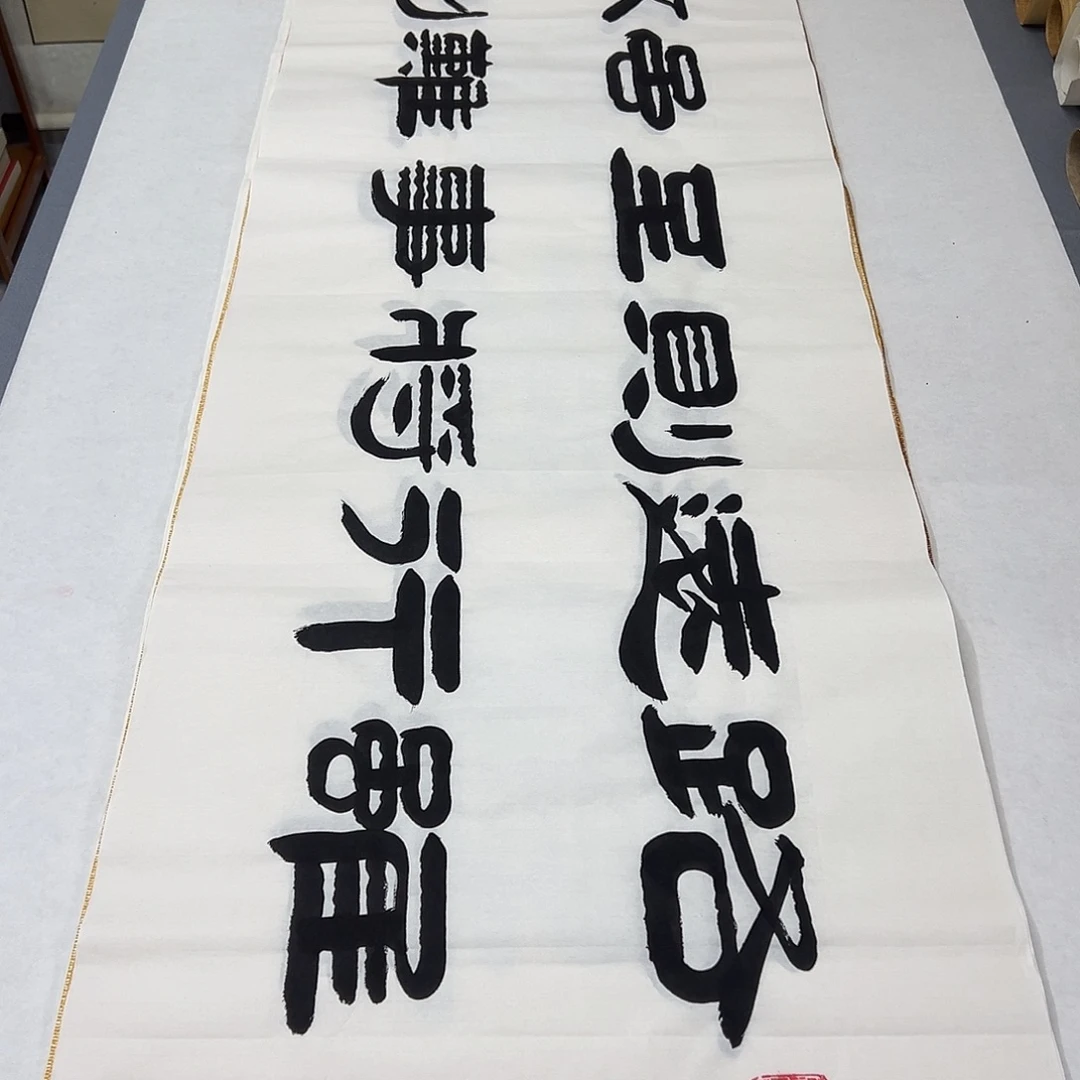 路雖
遠行
則將
至事
雖難